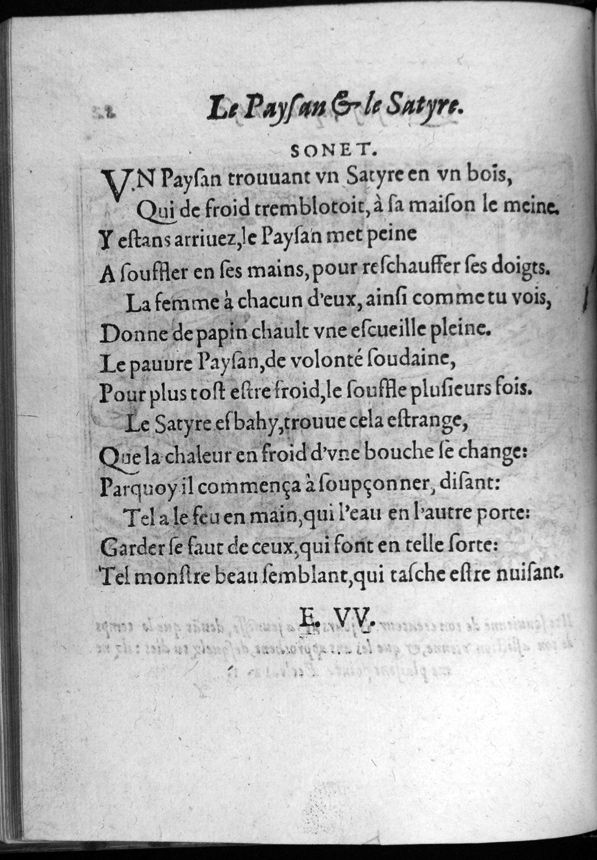 Le Payſan & le Satyre.
SONET.
VN Payſan trouuant vn Satyre en vn bois,
Qui de froid tremblotoit, à ſa maiſon le meine.
Y eſtans arriuez, le Payſan met peine
A ſouffler en ſes mains, pour reſchauffer ſes doigts.
La femme à chacun d'eux, ainſi comme tu vois,
Donne de papin chault vne eſcueille pleine.
Le pauure Payſan, de volonté ſoudaine,
Pour plus toſt eſtre froid, le ſouffle pluſieurs fois.
Le Satyre eſbahy, trouue cela eſtrange,
Que la chaleur en froid d'vne bouche ſe change:
Parquoy il commença à ſoupçonner, diſant:
Tel a le feu en main, qui l'eau en l'autre porte:
Garder ſe faut de ceux, qui font en telle ſorte:
Tel monſtre beau ſemblant, qui taſche eſtre nuiſant.
E. VV.